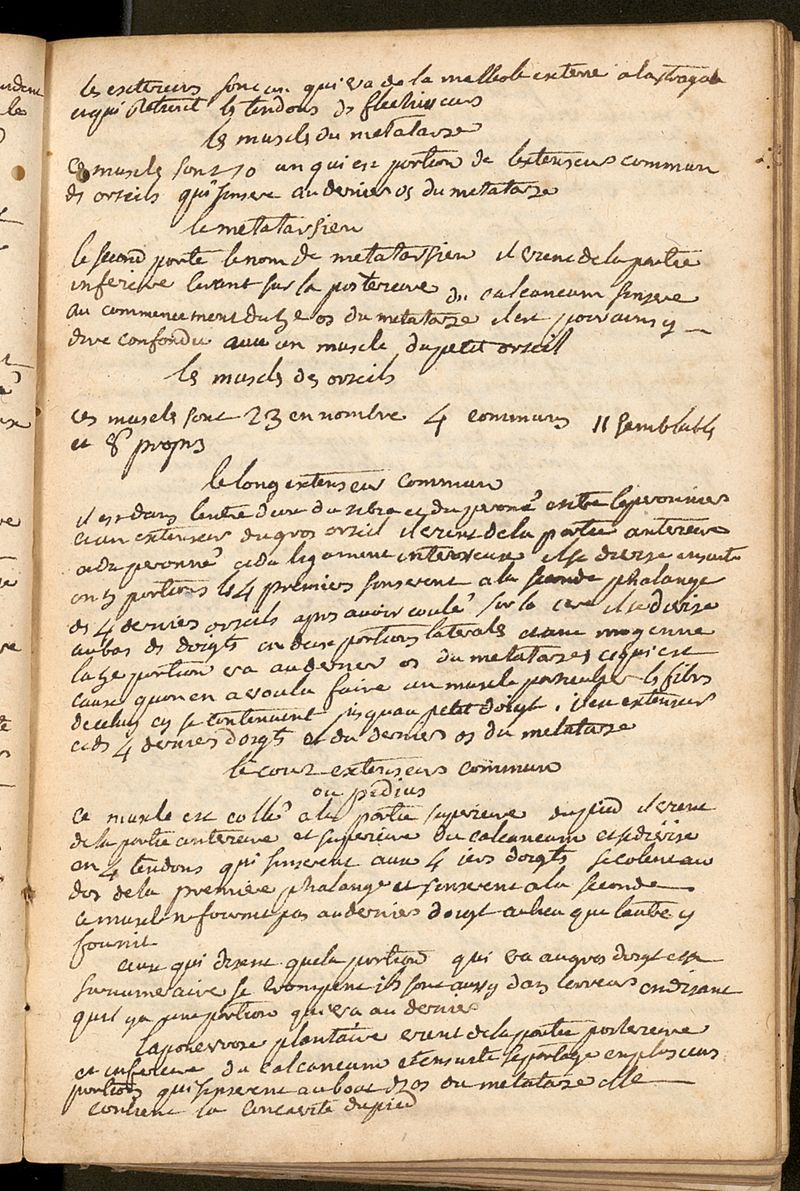 les exterieurs sont un qui va de la malleole externe a lastragal
et qui retient les tendons ds flechisseurs
les muscles du metatarse
Ces muscles sont 10 un qui est portion de lextenseur commun
ds orteils qui sinsere au dernier os du metatarse
le metatarsien
le second porte le nom de metatarsien il vient de la partie
inferieure tirant sur la posterieure du calcaneum sinsere
au commencement du 5e os du metatarse il est pour ainsy
dire confondu avec un muscle du petit orteil
les muscles des orteils
ces muscles sont 23 en nombre 4 communs 11 semblables
et 8 propres
le long extenseur commun
il est dans lentre deux du tibia et du peroné entre les peroniers
et un extenseur du gros orteil il vient de la partie anterieure
du peronné et du ligament interosseux il se divise ensuite
en 5 portions les 4 premiers sinserent a la seconde phalange
des 4 derniers orteils apres avoir coulé sur la 1ere il se divise
au bas ds doigts en deux portions laterales et une moyenne
la 5e portion va au dernier os du metatarse ce qui est
cause quon en a voulu faire un muscle particulier les fibres
de celuy cy se continuent jusquau petit doigt. il est extenseur
des 4 derniers doigts et du dernier os du metatarse
le court extenseur commun
ou pedieus
ce muscle est collé a la partie superieure du pied il vient
de la partie anterieure et superieure du calcaneum et se divise
en 4 tendons qui sinserent aux 4 1ers doigts se colent au
dos de la premiere phalange et sinserent a la seconde
ce muscle ne fournit pas au dernier doigt au lieu que lautre y
fournit
ceux qui disent que la portion qui va au gros doigt est
surnumeraire se trompent ils sont aussy dans lerreur en disant
quil y a une portion qui va au dernier
laponevrose plantaire vient de la partie posterieure
et inferieure du calcaneum et ensuite se partage en plusieurs
portions qui sinserent au bout ds os du metatarse elle
contient la concavité du pied